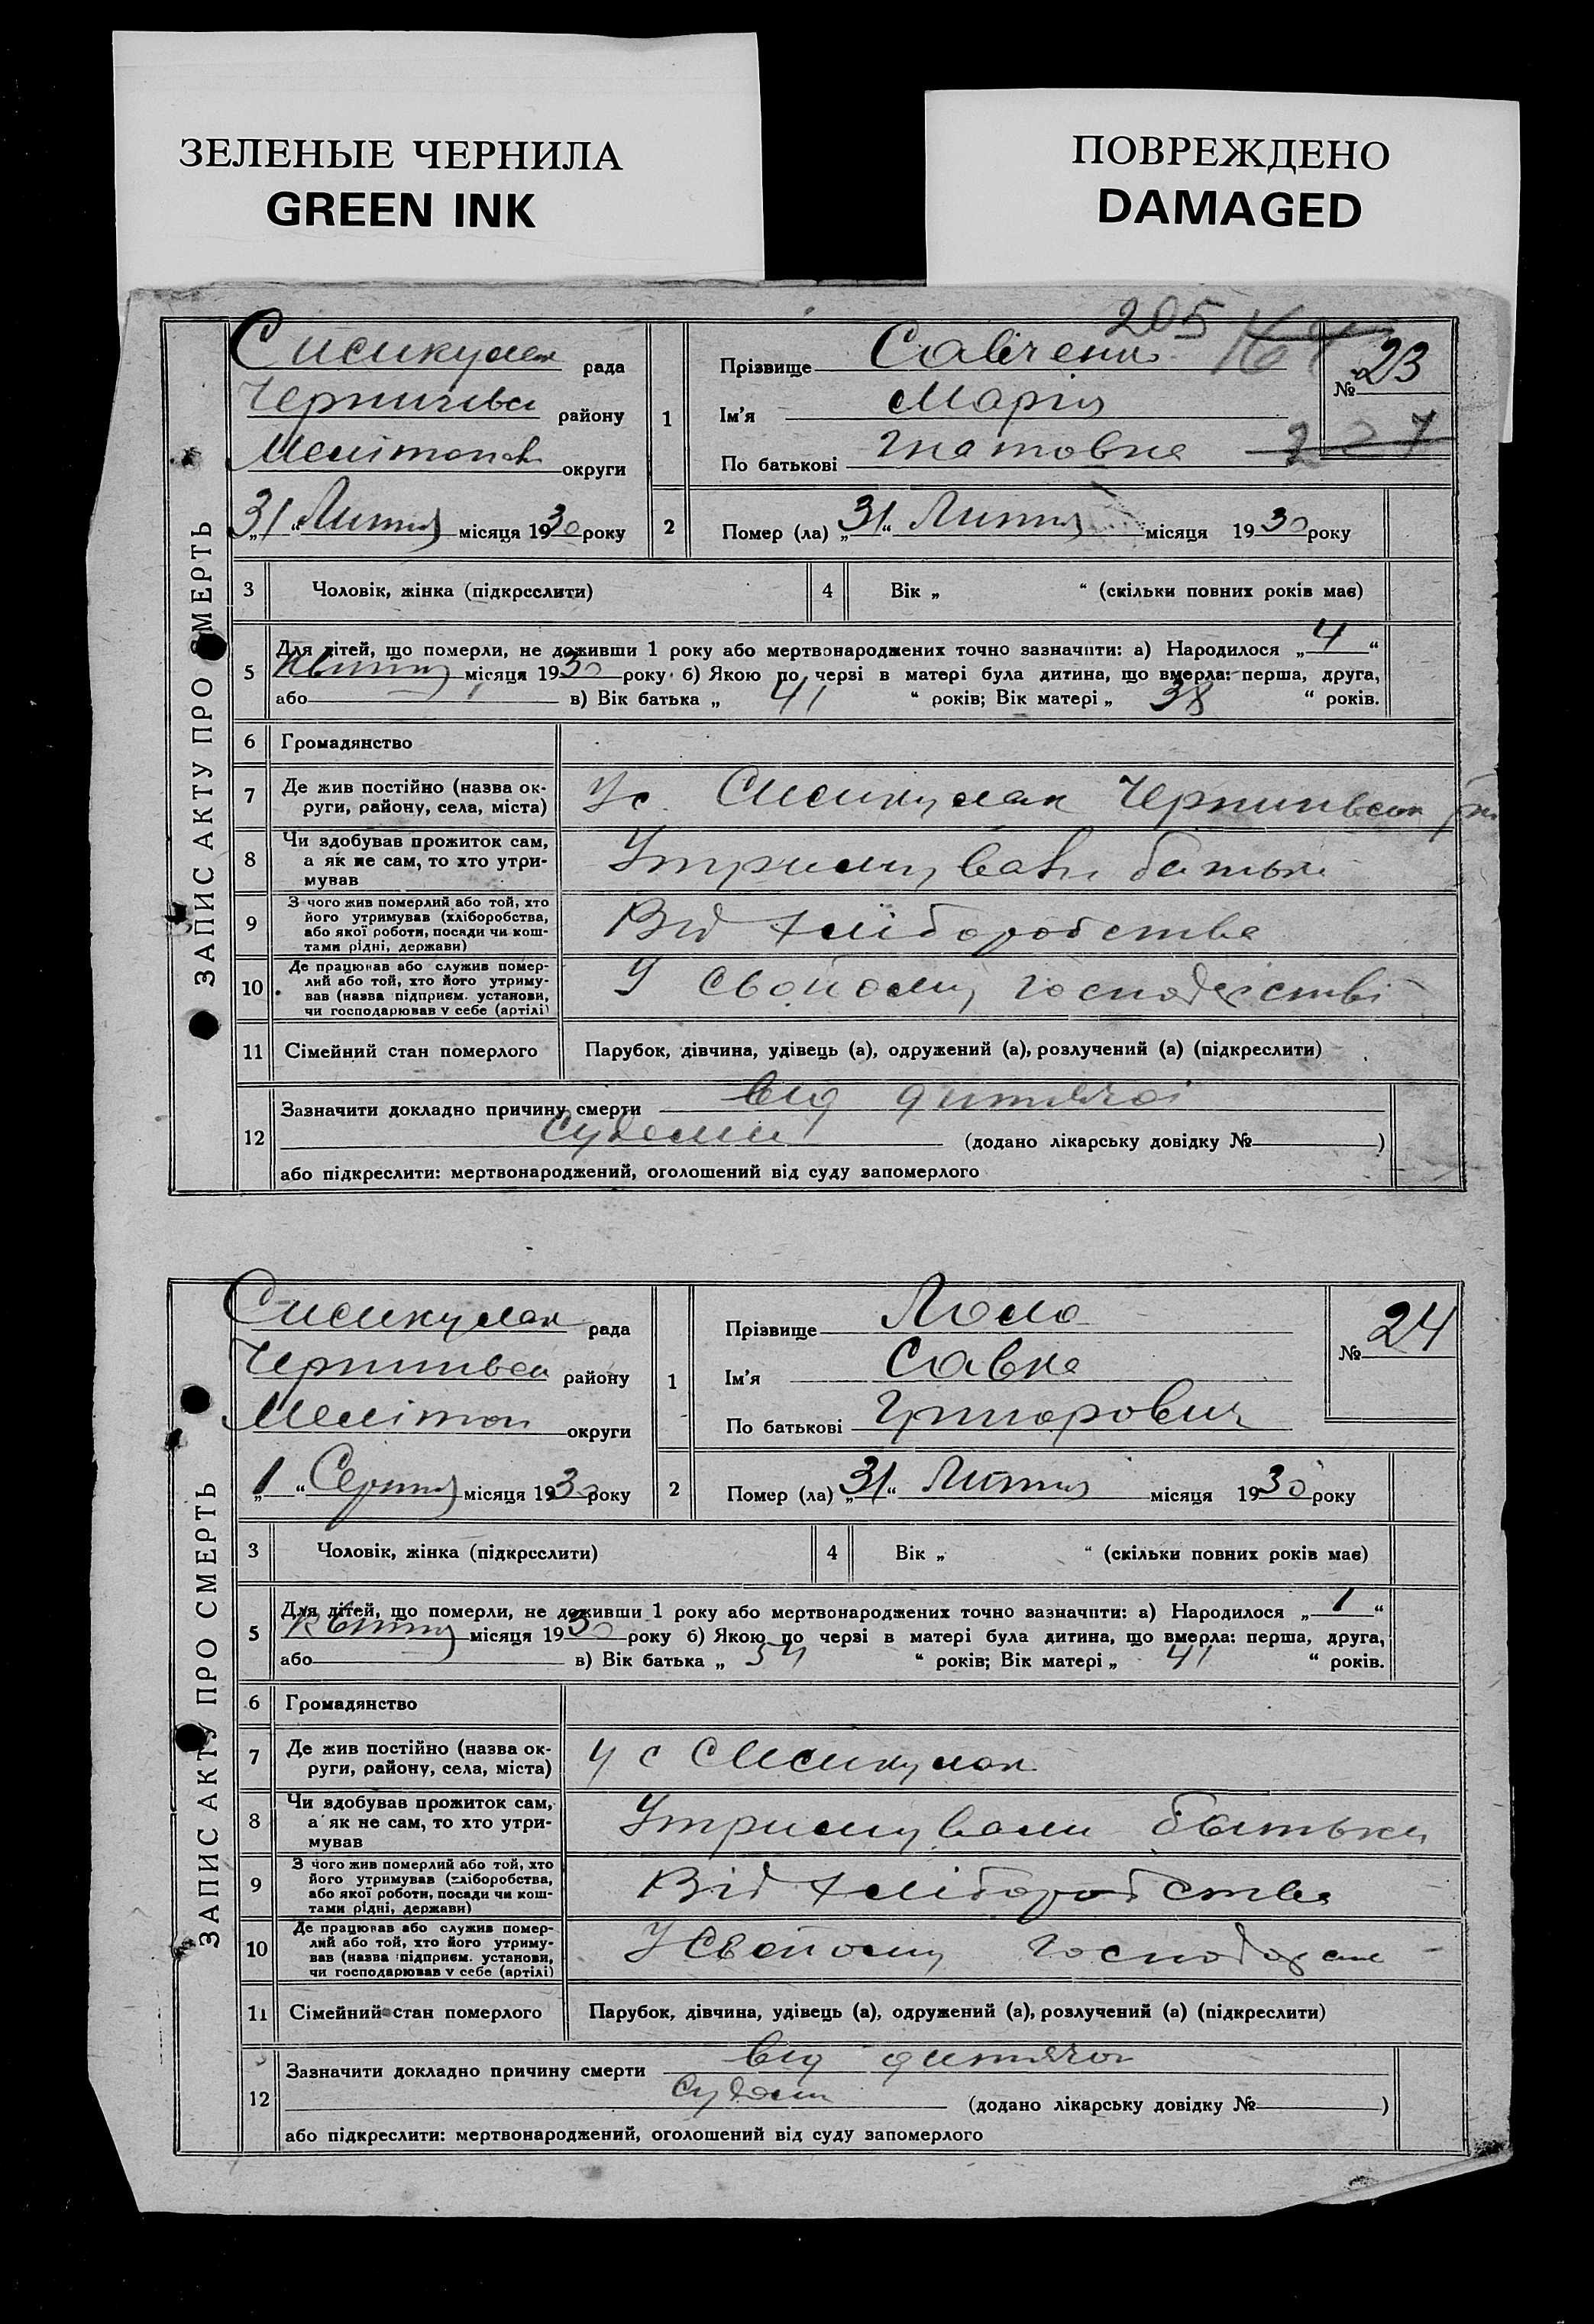 ЗЕЛЕНЫЕ ЧЕРНИЛА
GREEN INK
ПОВРЕЖДЕНО
DAMAGED
205
ЗАПИС АКТУ ПРО СМЕРТЬ
рада
району
округи
31 „ “ Липня місяця 1930 року
1
Прізвище
Ім’я Марія
По батькові Гнатовна
№ 23
227
2
Помер (ла) „31“ Липня місяця 1930 року
3 Чоловік, жінка (підкреслити)
4 Вік „ “ (скільки повних років має)
5 Для дітей, що померли, не доживши 1 року або мертвонароджених точно зазначити: а) Народилося „4“
Квітня місяця 1930 року б) Якою по черзі в матері була дитина, що вмерла: перша, друга,
або в) Вік батька „ 41 “ років; Вік матері „ 38 “ років.
6 Громадянство
7 Де жив постійно (назва округи, району, села, міста)
8 Чи здобував прожиток сам, а як не сам, то хто утримував
Утримували батьки
9 З чого жив померлий або той, хто його утримував (хліборобства, або якої роботи, посади чи коштами рідні, держави)
Від хліборобства
10 Де працював або служив померлий або той, хто його утримував (назва підприєм. установи, чи господарював у себе (артілі)
У свойому господарстві
11 Сімейний стан померлого
Парубок, дівчина, удівець (а), одружений (а), розлучений (а) (підкреслити)
12 Зазначити докладно причину смерти від дитячої
судоми (додано лікарську довідку № )
або підкреслити: мертвонароджений, оголошений від суду запомерлого
ЗАПИС АКТУ ПРО СМЕРТЬ
рада
району
Мелітоп округи
„1“ Серпня місяця 1930 року
1
Прізвище
Ім’я Савка
По батькові Григорович
№ 24
2
Помер (ла) „31“ Липня місяця 1930 року
3 Чоловік, жінка (підкреслити)
4 Вік „ “ (скільки повних років має)
5 Для дітей, що померли, не доживши 1 року або мертвонароджених точно зазначити: а) Народилося „1“
Квітня місяця 1930 року б) Якою по черзі в матері була дитина, що вмерла: перша, друга,
або в) Вік батька „ “ років; Вік матері „ 41 “ років.
6 Громадянство
7 Де жив постійно (назва округи, району, села, міста)
8 Чи здобував прожиток сам, а як не сам, то хто утримував
Утримували батьки
9 З чого жив померлий або той, хто його утримував (хліборобства, або якої роботи, посади чи коштами рідні, держави)
Від хліборобства
10 Де працював або служив померлий або той, хто його утримував (назва підприєм. установи, чи господарював у себе (артілі)
У свойому
11 Сімейний стан померлого
Парубок, дівчина, удівець (а), одружений (а), розлучений (а) (підкреслити)
12 Зазначити докладно причину смерти від дитячої
судоми (додано лікарську довідку № )
або підкреслити: мертвонароджений, оголошений від суду запомерлого